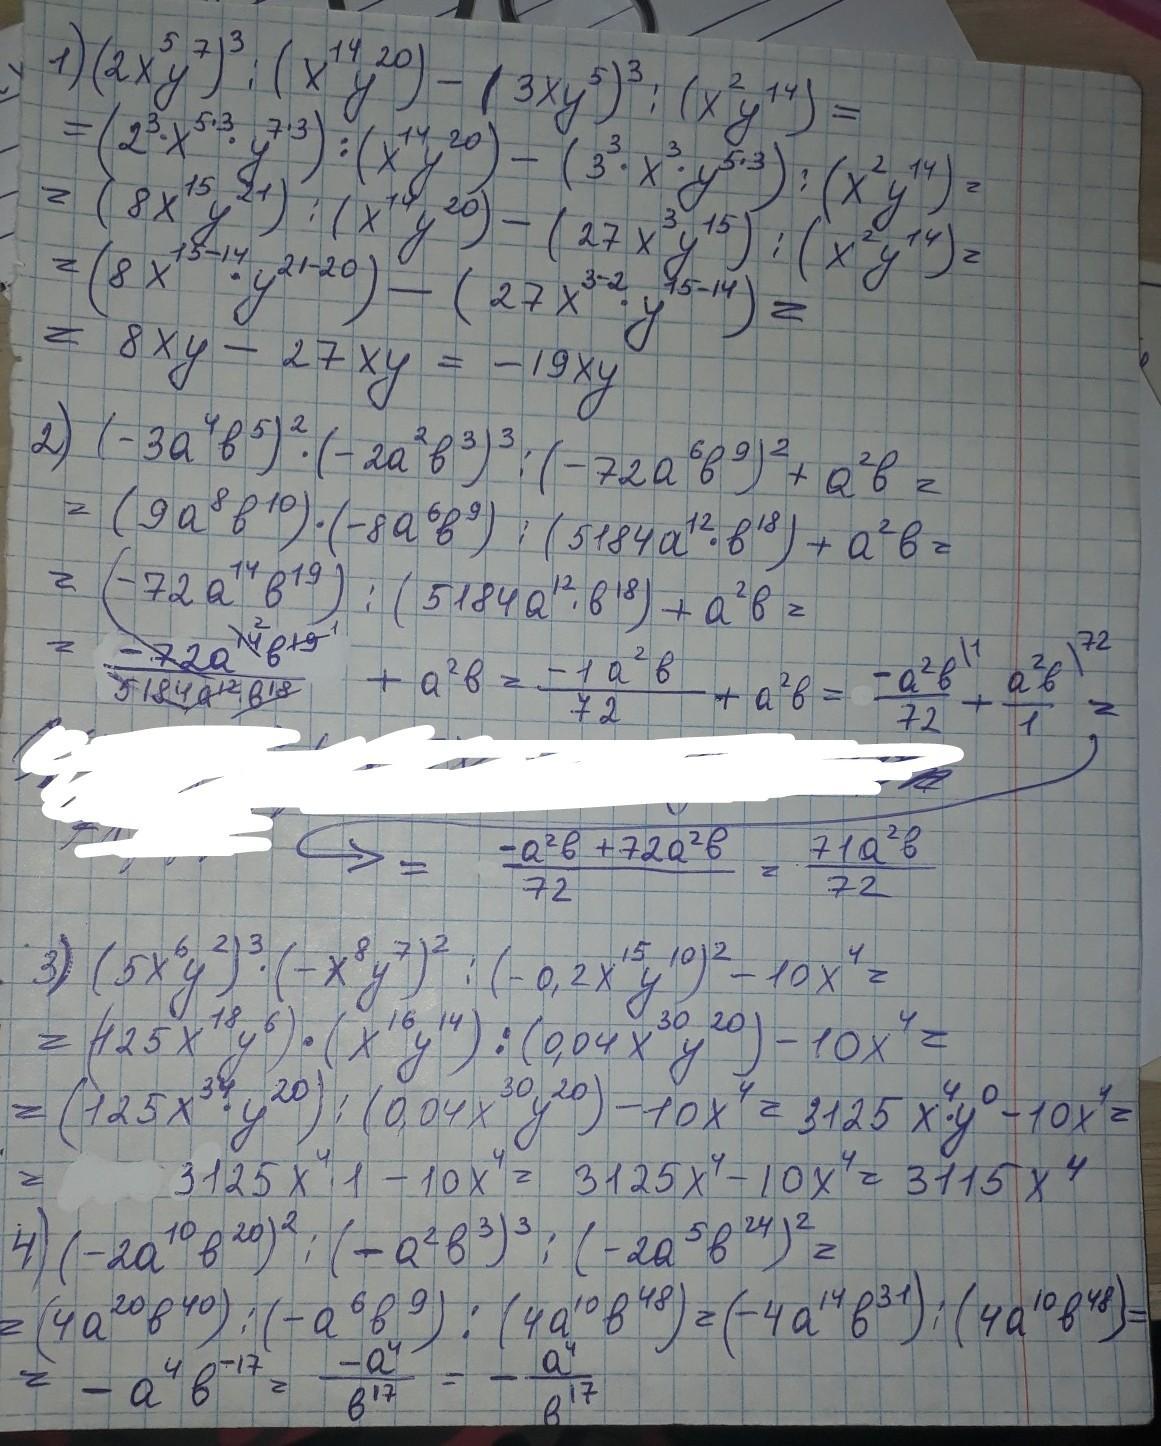 1) (2x⁵y⁷)³ : (x¹⁴y²⁰) - (3xy⁵)³ : (x²y¹⁴) =
= (2³·x⁵·³·y⁷·³) : (x¹⁴y²⁰) - (3³·x³·y⁵·³) : (x²y¹⁴) =
= (8x¹⁵y²¹) : (x¹⁴y²⁰) - (27x³y¹⁵) : (x²y¹⁴) =
= (8x¹⁵⁻¹⁴·y²¹⁻²⁰) - (27x³⁻²·y¹⁵⁻¹⁴) =
= 8xy - 27xy = -19xy
2) (-3a⁴в⁵)²·(-2a²в³)³ : (-72a⁶в⁹)² + a²в =
= (9a⁸в¹⁰)·(-8a⁶в⁹) : (5184a¹²·в¹⁸) + a²в =
= (-72a¹⁴в¹⁹) : (5184a¹²·в¹⁸) + a²в =
= -72a¹⁴в¹⁹/5184a¹²в¹⁸ + a²в = -1a²в/72 + a²в = -a²в\1/72 + a²в\72/1 =
= -a²в + 72a²в/72 = 71a²в/72
3) (5x⁶y²)³·(-x⁸y⁷)² : (-0,2x¹⁵y¹⁰)² - 10x⁴ =
= (125x¹⁸y⁶)·(x¹⁶y¹⁴) : (0,04x³⁰y²⁰) - 10x⁴ =
= (125x³⁴·y²⁰) : (0,04x³⁰y²⁰) - 10x⁴ = 3125x⁴·y⁰ - 10x⁴ =
= 3125x⁴·1 - 10x⁴ = 3125x⁴ - 10x⁴ = 3115x⁴
4) (-2a¹⁰в²⁰)² : (-a²в³)³ : (-2a⁵в²⁴)² =
= (4a²⁰в⁴⁰) : (-a⁶в⁹) : (4a¹⁰в⁴⁸) = (-4a¹⁴в³¹) : (4a¹⁰в⁴⁸) =
= -a⁴в⁻¹⁷ = -a⁴/в¹⁷ = - a⁴/в¹⁷